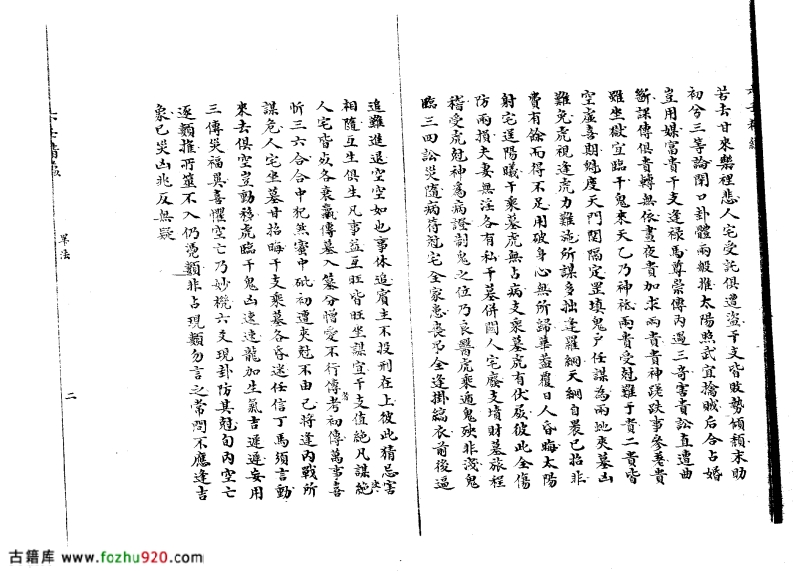 苦去甘來樂裡悲人宅受託俱遭盜干支皆敗勢傾頹末助
初兮三等論閉口卦體兩般推太陽照武宜擒賊后合占婚
豈用媒富貴干支逢祿馬尊崇傳內遇三奇害貴訟直遭曲
斷課傳俱貴轉無依晝夜貴加求兩貴貴神蹉跌事參差貴
雖坐獄宜臨干鬼乘天乙乃神祇兩貴受尅難干貴二貴皆
空虛喜期魁度天門関隔定罡填鬼戶任謀為兩虵夾墓凶
難免虎視逢虎力難施所謀多拙逢羅網天網自裹已招非
費有餘而得不足用破身心無所歸華蓋覆日人昏晦太陽
射宅逞陽曦干乘墓虎無占病支乘墓虎有伏屍彼此全傷
防兩損夫妻無淫各有私干墓併關人宅廢支墳財墓旅程
稽受虎尅神為病證制鬼之位乃良醫虎乘遁鬼殃非淺鬼
臨三四訟災隨病符尅宅全家患喪吊全逢掛縞衣前後逼
追難進退空空如也事休追賓主不投刑在上彼此猜忌害
相隨互生俱生凡事益互旺皆旺坐謀宜干支值絕凡謀絕
人宅皆死各衰羸傳墓入墓分憎愛不行傳考初傳萬事喜
忻三六合合中犯煞蜜中砒初遭夾尅不由己將逢內戰所
謀危人宅坐墓甘招晦干支乘墓各昏迷任信丁馬須言動
來去俱空豈動移虎臨干鬼凶速速龍加生氣吉遲遲妄用
三傳災福異喜懼空亡乃妙機六支現卦防其尅旬內空亡
逐類推所筮不入仍憑類非占現類勿言之常問不應逢吉
象已災凶兆反無疑
畢法
二
古籍库 www.fozhu920.com